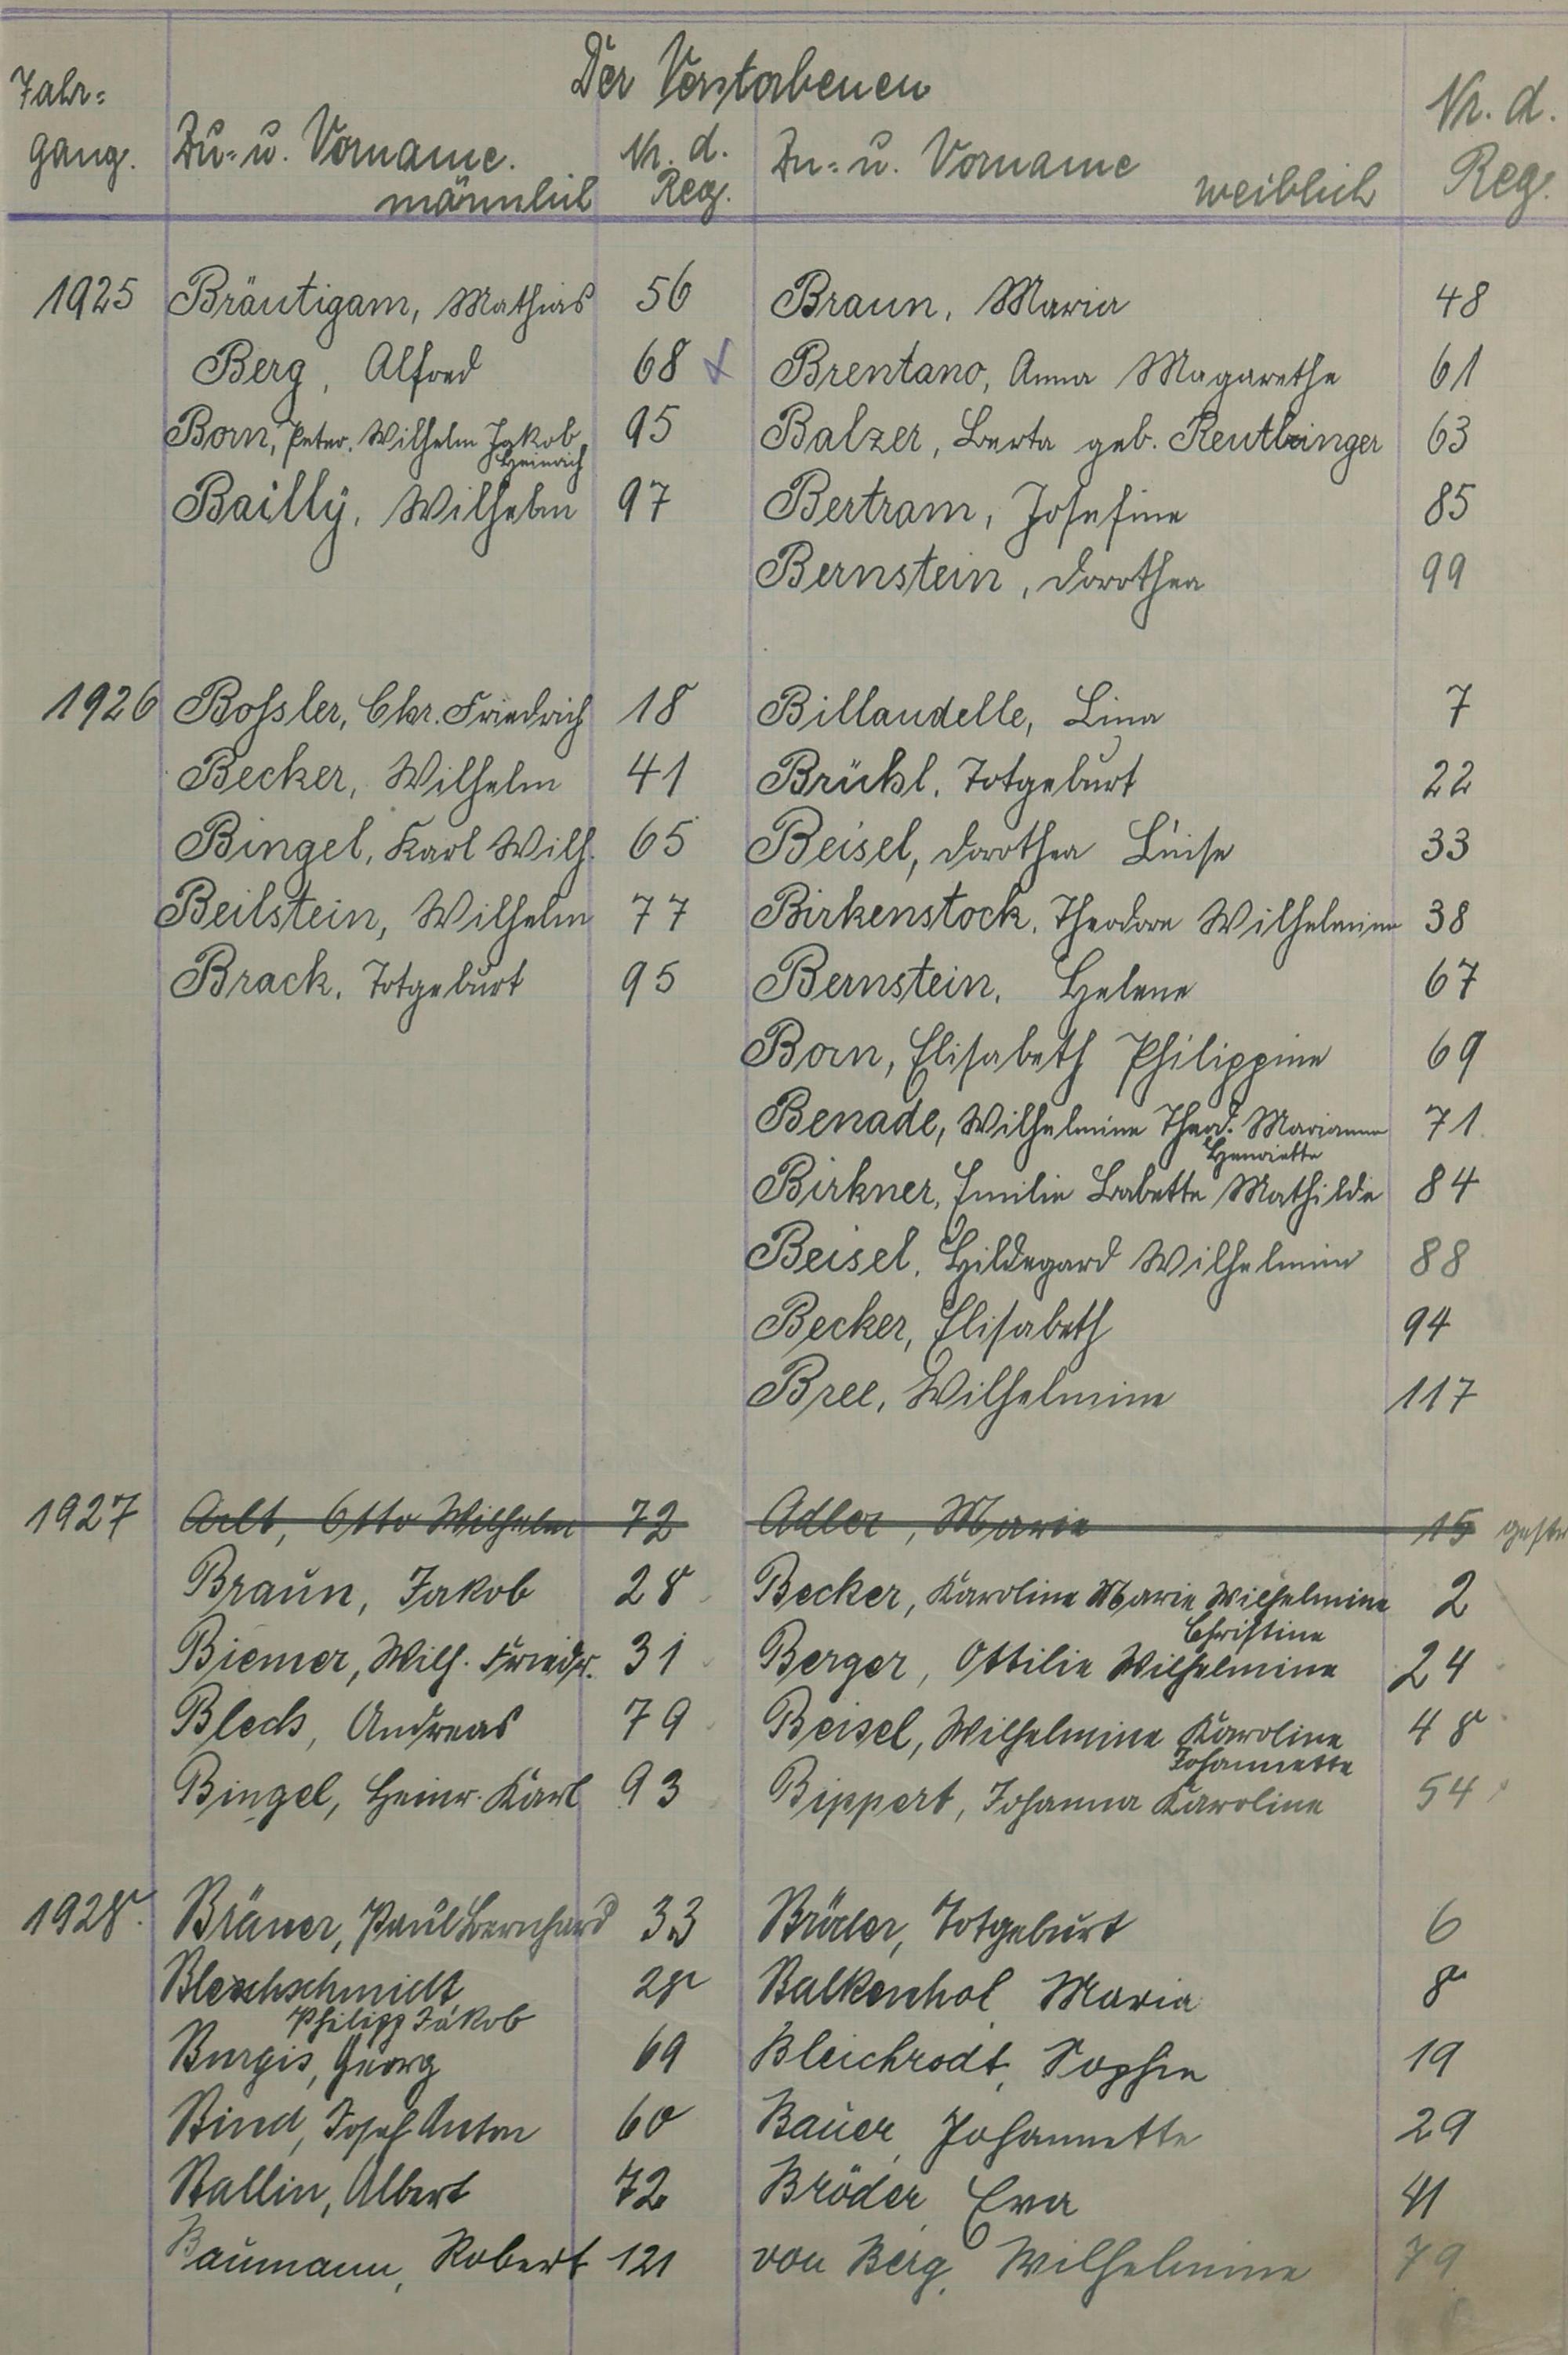 Der Verstorbenen
Jahr=
gang. Zu= u. Vorname. männlich Nr. d. Reg. Zu= u. Vorname weiblich Nr. d. Reg.
1925 Bräutigam, Mathias 56 Braun, Maria 48
Berg, Alfred 68 x Brentano, Anna Magarethe 61
Born, Peter. Wilhelm Jakob, Heinrich 95 Balzer, Berta geb. Reutlinger 63
Bailly, Wilhelm 97 Bertram, Josefine 85
Bernstein, Dorothea 99
1926 Bossler, Chr. Friedrich 18 Billaudelle, Lina 7
Becker, Wilhelm 41 Brühl, Totgeburt 22
Bingel, Karl Wilh. 65 Beisel, Dorothea Luise 33
Beilstein, Wilhelm 77 Birkenstock, Theodore Wilhelmine 38
Brack, Totgeburt 95 Bernstein, Helene 67
Born, Elisabeth Philippine 69
Benade, Wilhelmine Theod. Marianne Henriette 71
Birkner, Emilie Babette Mathilde 84
Beisel, Hildegard Wilhelmine 88
Becker, Elisabeth 94
Bree, Wilhelmine 117
1927 Arlt, Otto Wilhelm 72 Adler, Marie 15
Braun, Jakob 28 Becker, Karoline Marie Wilhelmine Christine 2
Biemer, Wilh. Friedr. 31 Berger, Ottilie Wilhelmine 24
Blech, Andreas 79 Beisel, Wilhelmine Karoline Johannette 48
Bingel, Heinr. Karl 93 Bippert, Johanna Karoline 54
1928. Bräuer, Paul Bernhard 33 Bröder, Totgeburt 6
Blechschmidt Philipp Jakob 28 Balkenhol Maria 8
Burgis, Georg 69 Bleichrodt, Sophie 19
Bind, Josef Anton 60 Bauer, Johannette 29
Ballin, Albert 72 Bröder, Eva 41
Baumann, Robert 121 von Berg, Wilhelmine 79